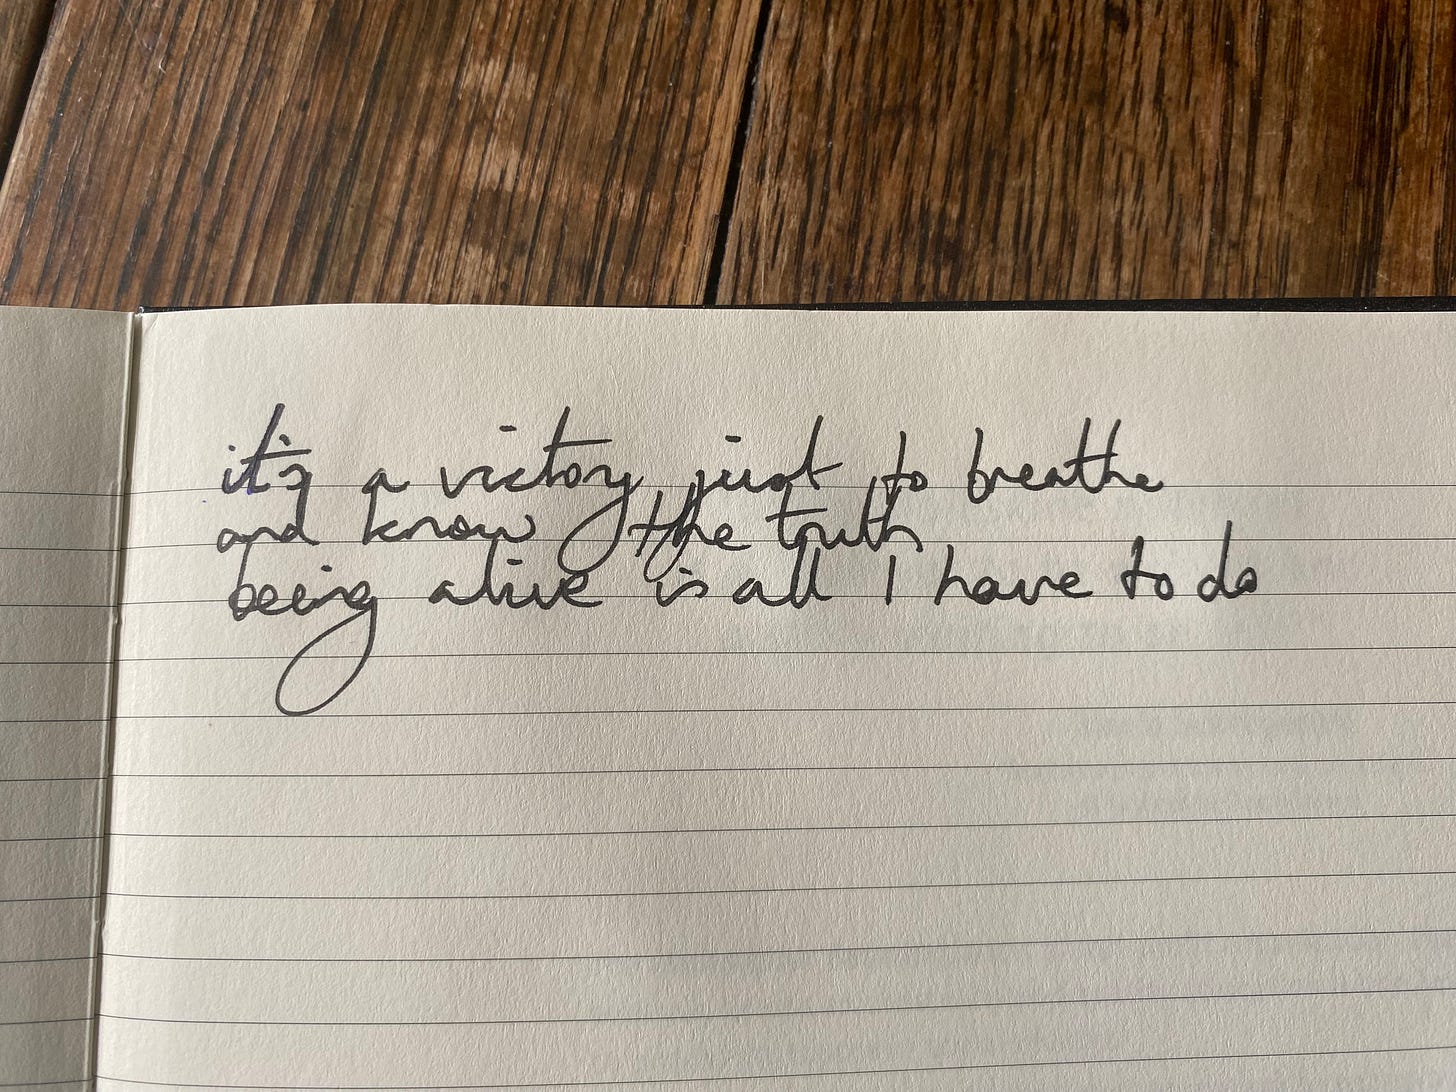 it's a victory just to breathe
and know the truth
being alive is all I have to do